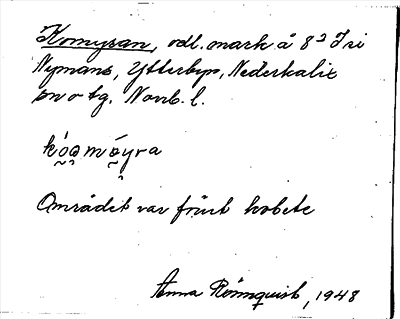 Komyran, odl. mark å 8² Fri
Nymans, Ytterbyn, Nederkalix
sn o tg. Norrb. l.
kóo̯móyra
Området var förut kobete
Anna Rönnquist, 1948